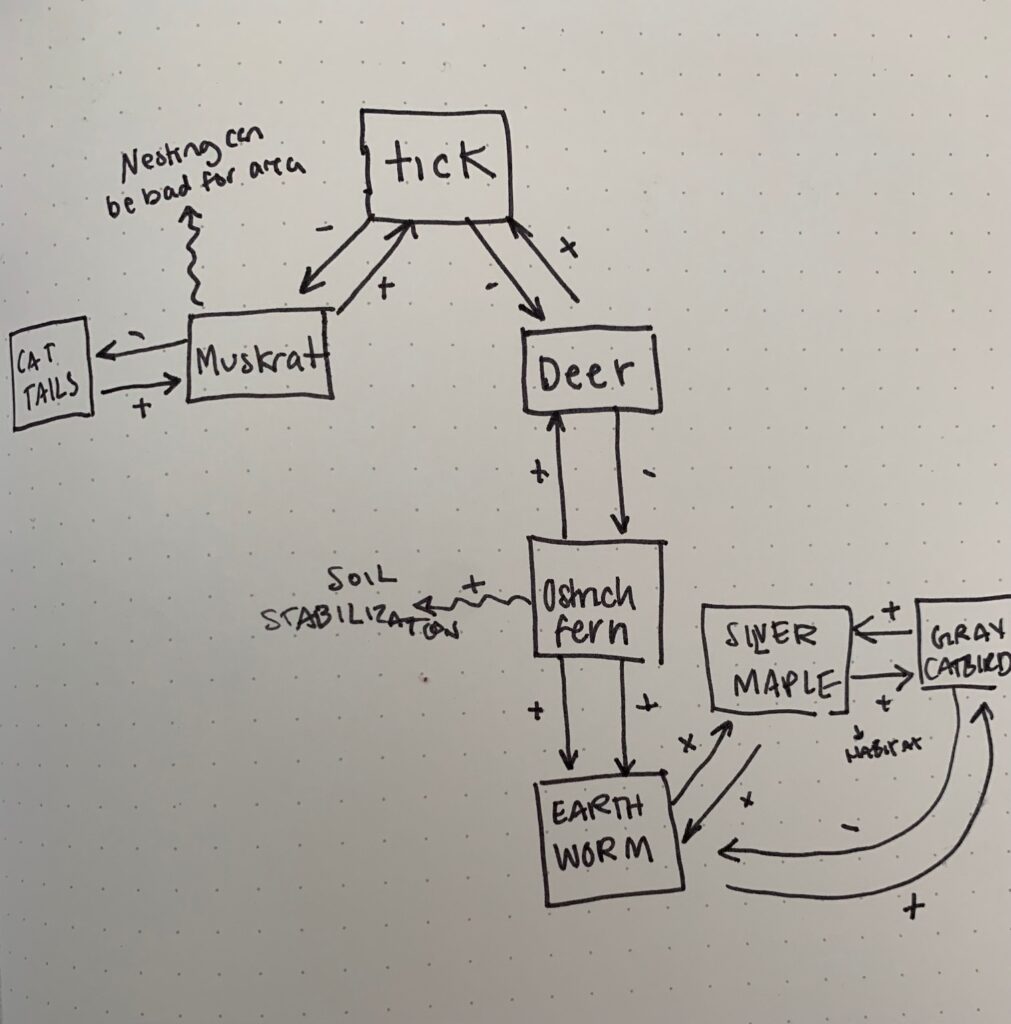 Nesting can
be bad for area
tick
-
+
-
+
CAT
TAILS
-
+
Muskrat
Deer
+
-
SOIL
STABILIZATION
+
Ostrich
fern
SILVER
MAPLE
+
+
GRAY
CATBIRD
HABITAT
+
+
+
+
EARTH
WORM
-
+